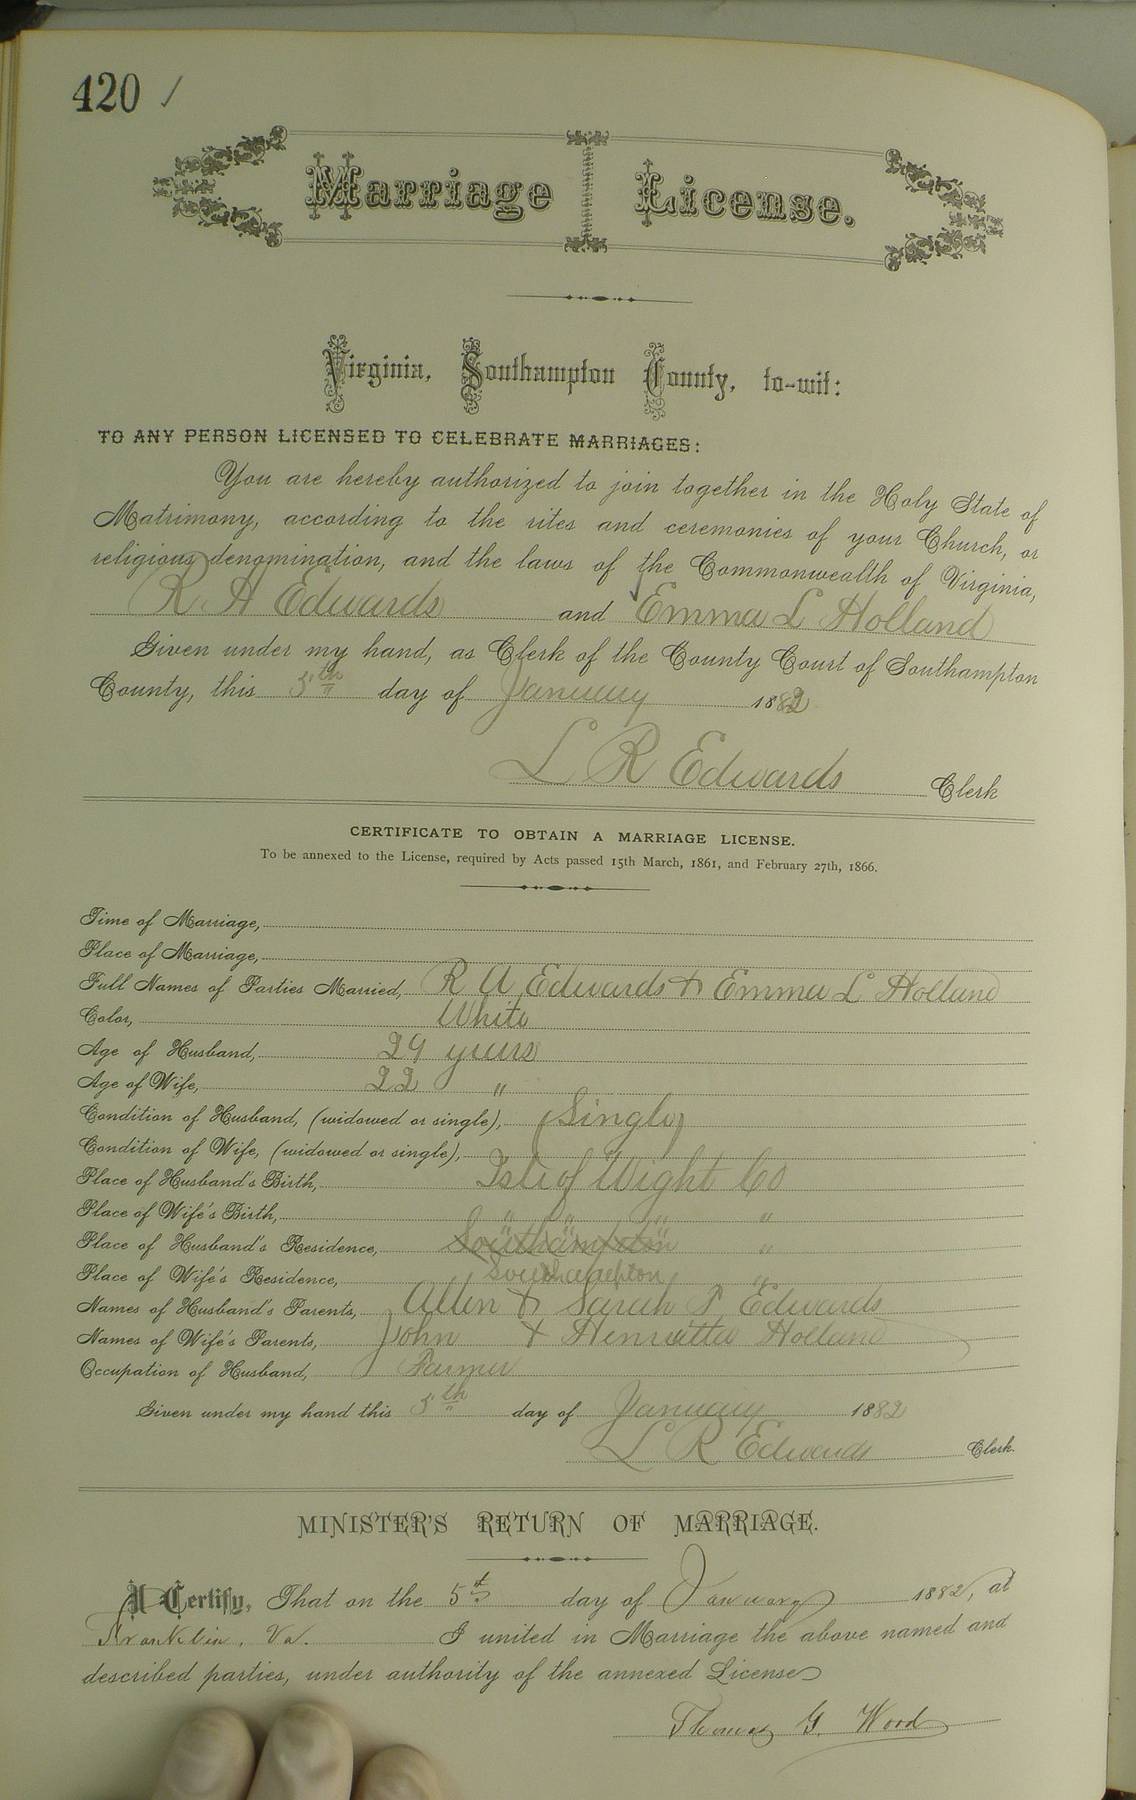 420 /
Marriage License.
Virginia, Southampton County, to-wit:
TO ANY PERSON LICENSED TO CELEBRATE MARRIAGES:
You are hereby authorized to join together in the Holy State of
Matrimony, according to the rites and ceremonies of your Church, or
religious denomination, and the laws of the Commonwealth of Virginia,
R. A Edwards and Emma L Holland
Given under my hand, as Clerk of the County Court of Southampton
County, this 5th day of January 1882
L R Edwards Clerk
CERTIFICATE TO OBTAIN A MARRIAGE LICENSE.
To be annexed to the License, required by Acts passed 15th March, 1861, and February 27th, 1866.
Time of Marriage,
Place of Marriage,
Full Names of Parties Married, R A Edwards & Emma L Holland
Color, White
Age of Husband, 29 years
Age of Wife, 22 "
Condition of Husband, (widowed or single), (Single)
Condition of Wife, (widowed or single),
Place of Husband's Birth, Isle of Wight Co
Place of Wife's Birth, " " " "
Place of Husband's Residence, Southampton "
Place of Wife's Residence, Southampton "
Names of Husband's Parents, Allen & Sarah P Edwards
Names of Wife's Parents, John & Henrietta Holland
Occupation of Husband, Farmer
Given under my hand this 5th day of January 1882
L R Edwards Clerk.
MINISTER'S RETURN OF MARRIAGE.
I Certify, That on the 5th day of January 1882, at
Franklin, Va. I united in Marriage the above named and
described parties, under authority of the annexed License
Thomas G. Wood